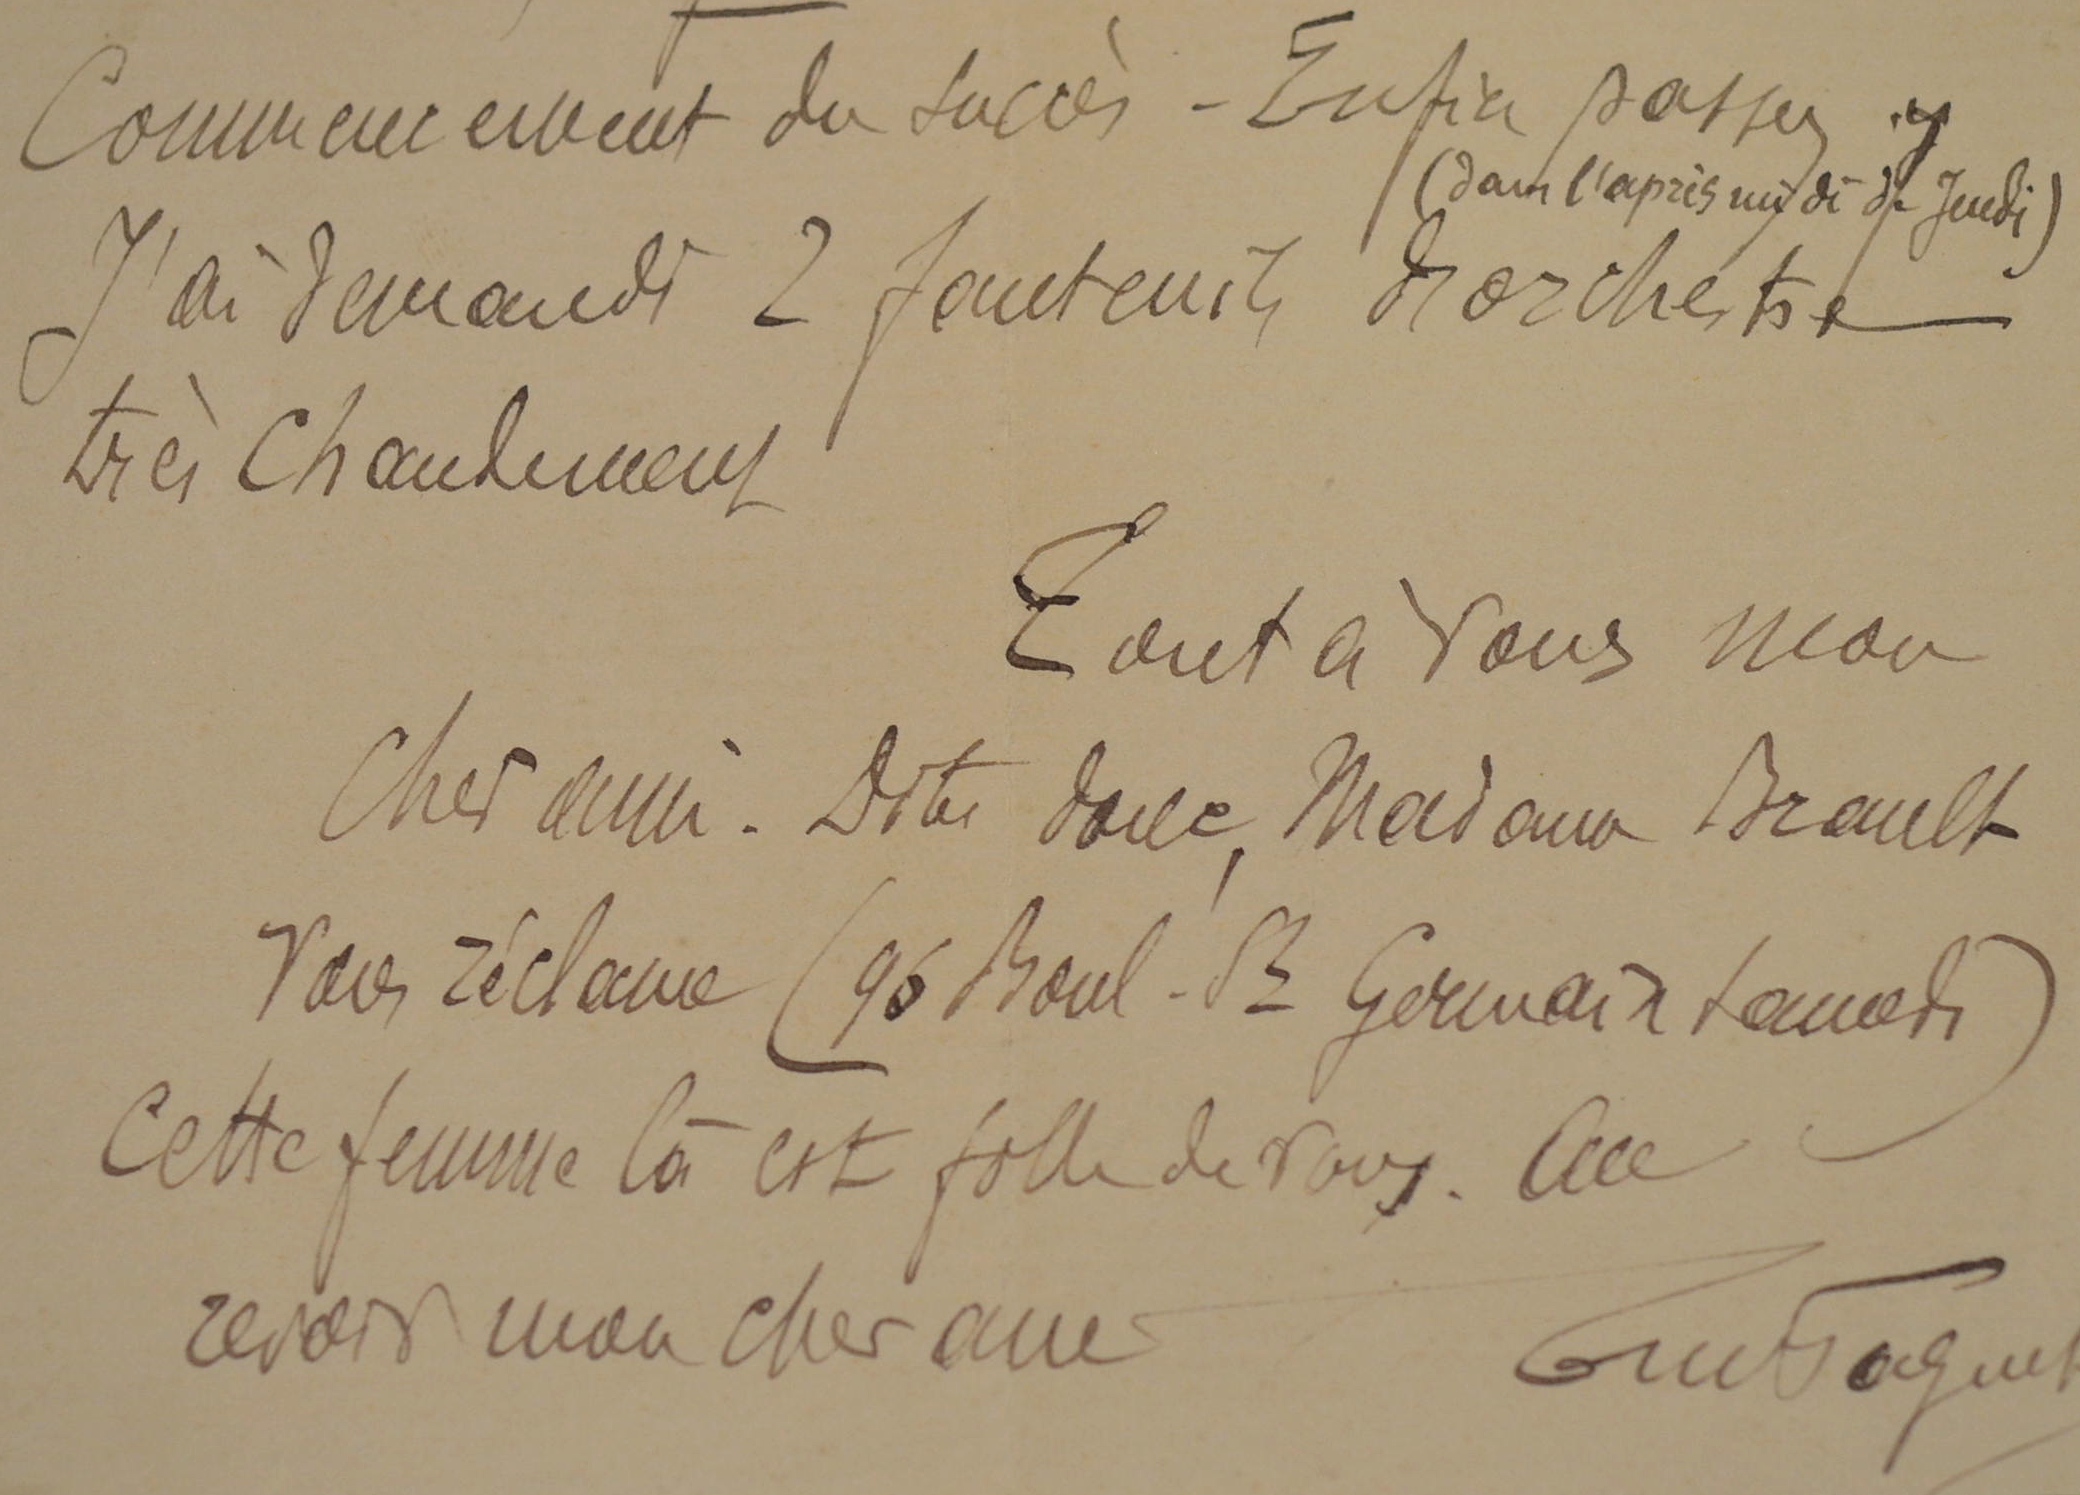 Commencement du succès - Enfin passez y
(dans l'après midi de Jeudi)
J'ai demandé 2 fauteuils d'orchestre
très chaudement
Tout à vous mon
cher ami. Dites donc, Madame Brault
vous réclame (96 Boul. St Germain samedi)
Cette femme là est folle de vous. Au
revoir mon cher ami
Em Faguet